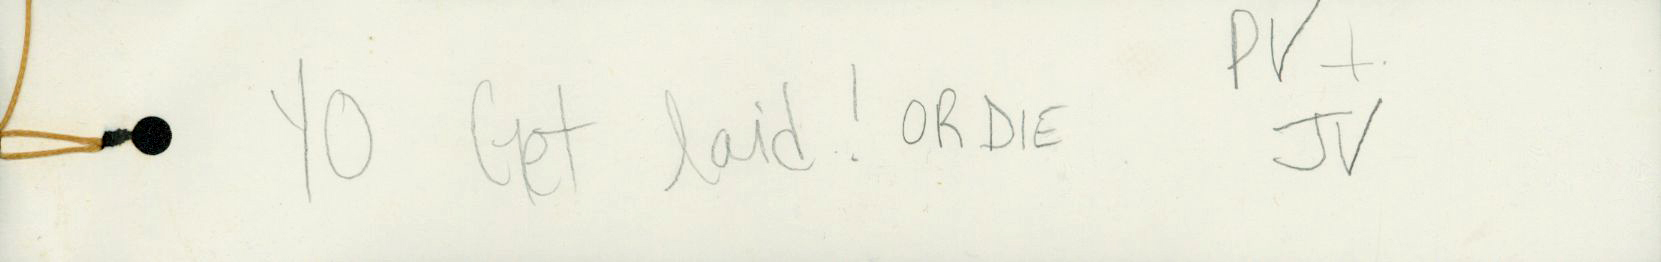 YO Get laid! OR DIE
PV +
JV